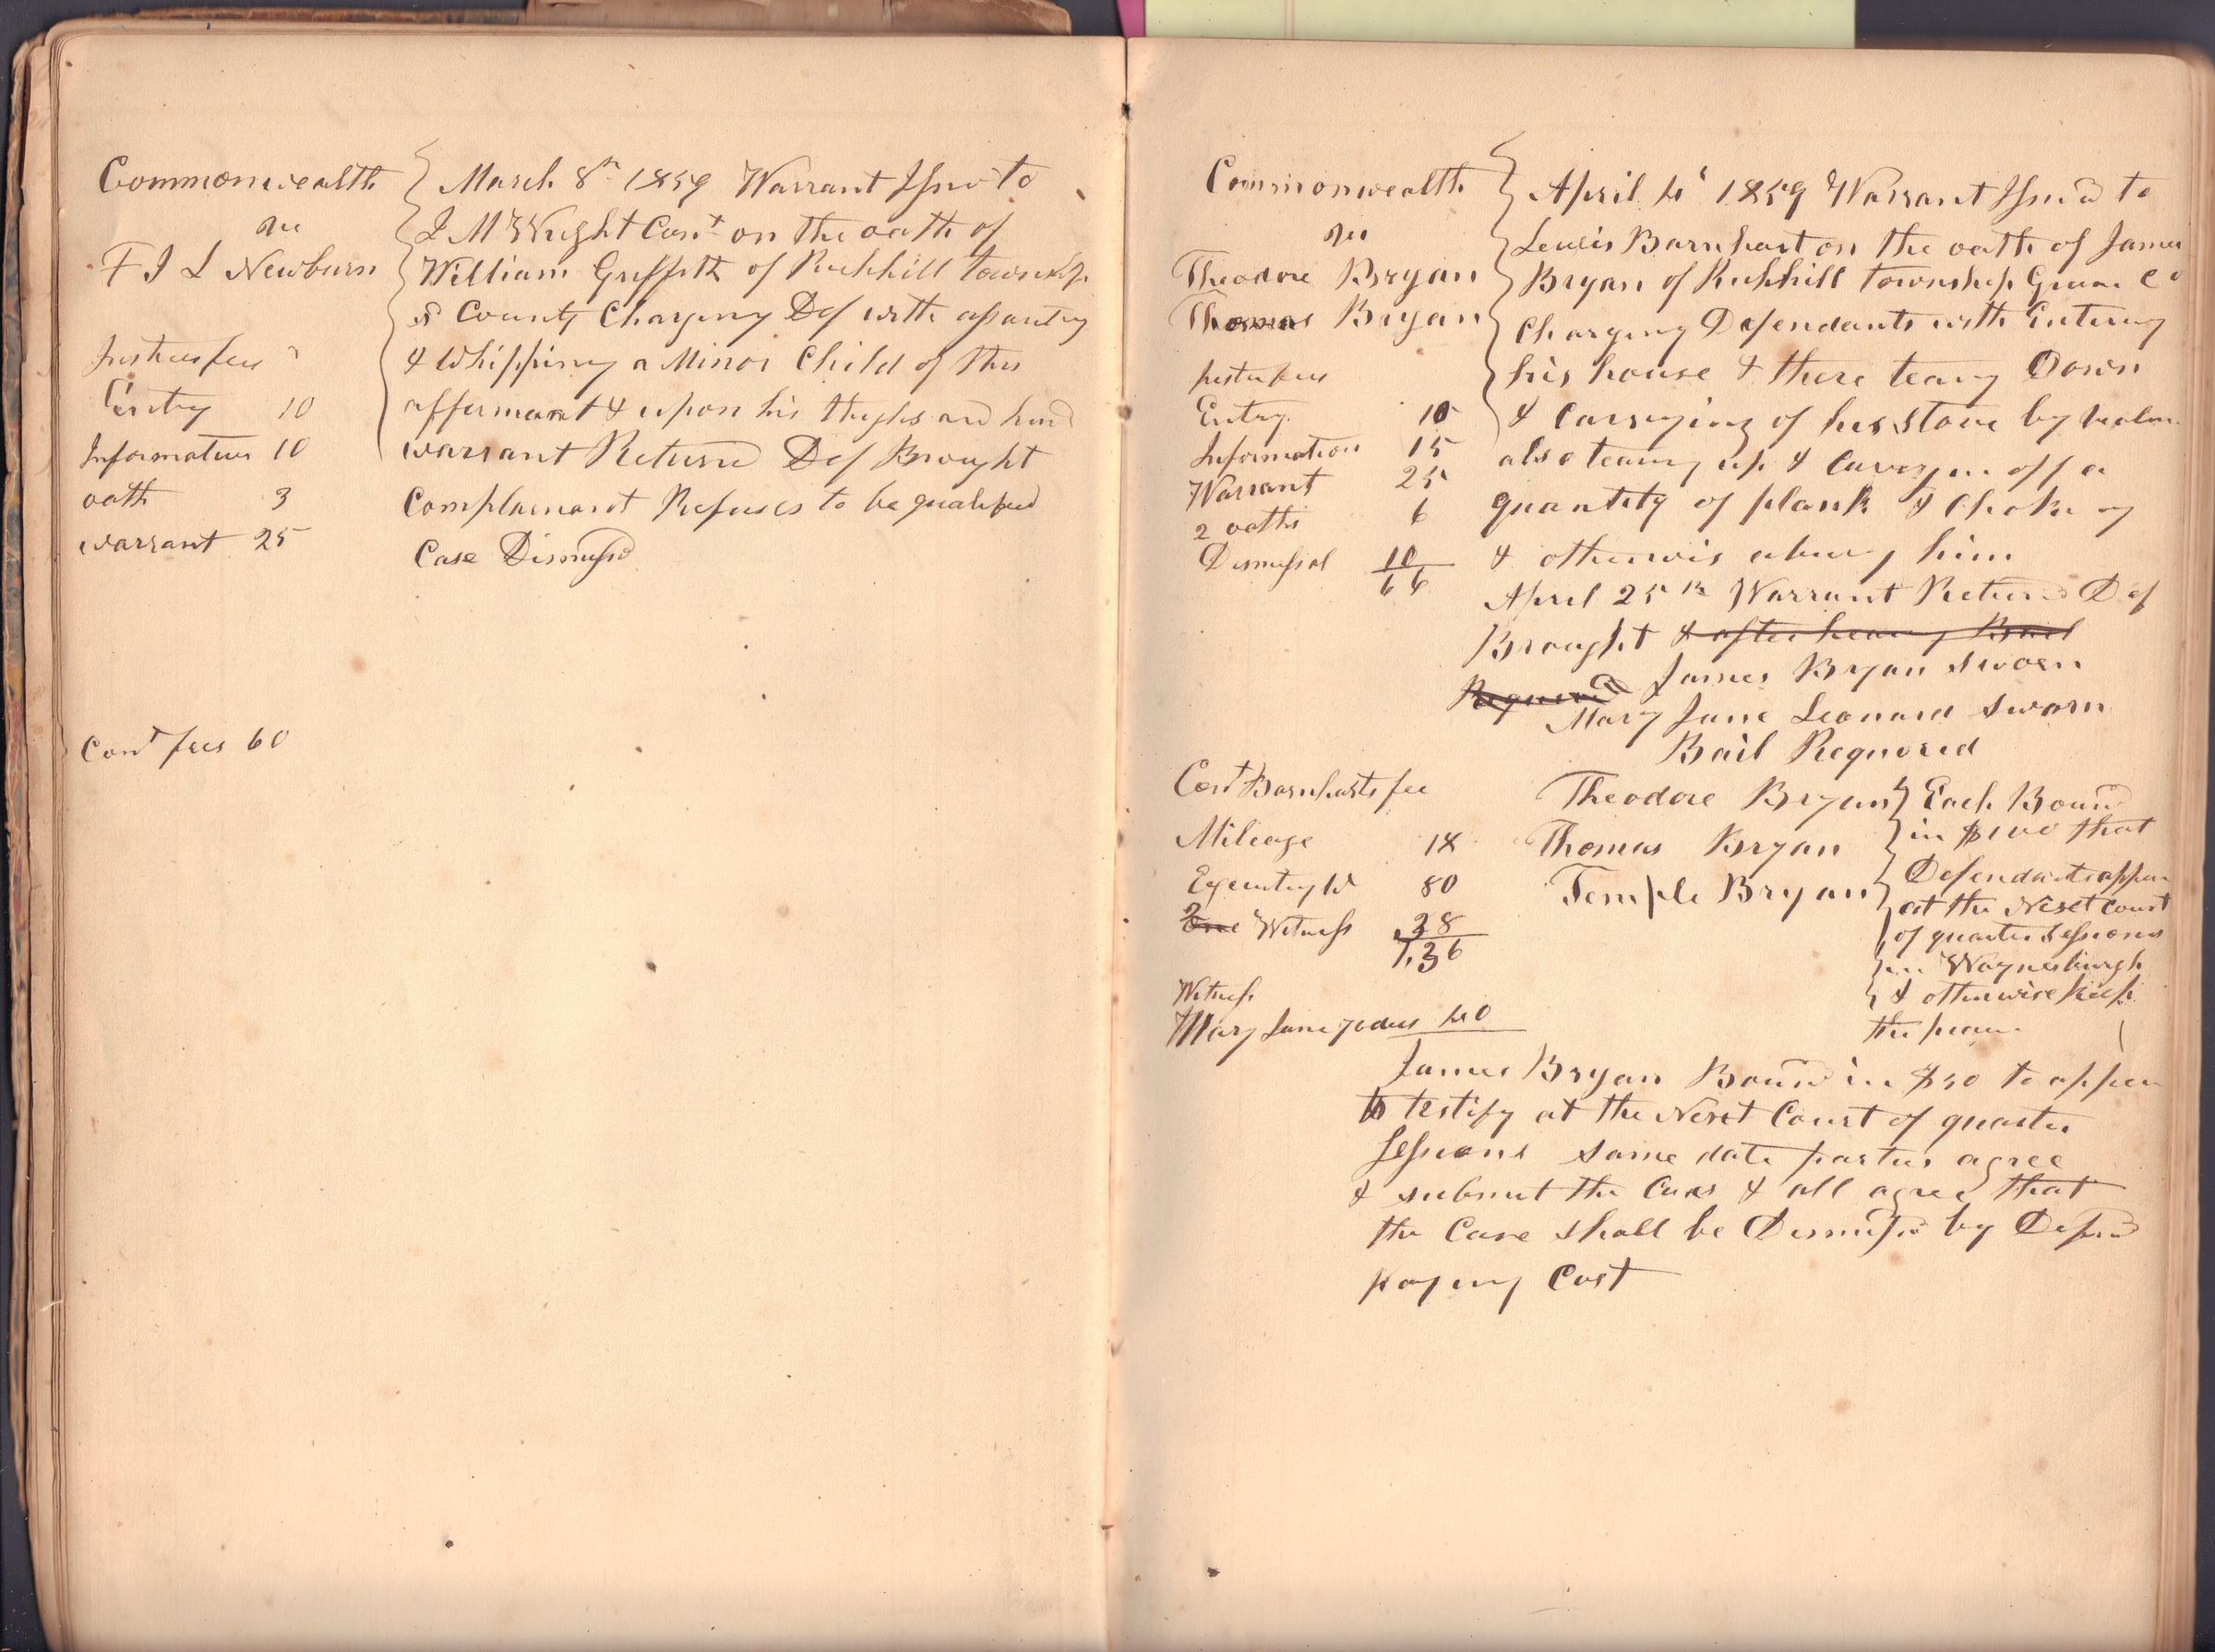 Commonwealth
vs
F J L Newburn
March 8th 1859 Warrant Issud to
J M Wright Const on the oath of
William Griffith of Richhill township
& County Charging Def with assauting
& Whipping a Minor Child of this
affirmant & upon his thighs and hand
warrant Returnd Def Brought
Complainant Refuses to be qualified
Case Dismissd
Justices fees
Entry 10
Information 10
oath 3
warrant 25
Const fees 60
Commonwealth
vs
Theodore Bryan
Thomas Bryan
April 4th 1859 Warrant Issud to
Lewis Barnhart on the oath of James
Bryan of Richhill township Green Co
Charging Defendants with Entering
his house & there tearing Down
& Carrying of his Stove by
also tearing up & Carrying off a
quantity of plank & Choking
& otherwis abusing him
April 25th Warrant Returnd Def
Brought & after hearing Bail
Required James Bryan sworn
Mary Jane Leonard sworn
Bail Requored
Justices fees
Entry 10
Information 15
Warrant 25
2 oaths 6
Dismissal 10
66
Const Barnharts fee
Mileage 18
Executing W 80
2 One Witness 38
1.36
Witness
Mary Jane 40
Theodore Bryan
Thomas Bryan
Temple Bryan
Each Bound
in $100 that
Defendants appear
at the Next Court
of quarter Sessions
in Waynesburgh
& otherwise keep
the peace
James Bryan Bound in $50 to appear
to testify at the Next Court of quarter
Sessions same date parties agree
& submit the Case & all agree that
the Case shall be Dismissd by Defend
paying Cost